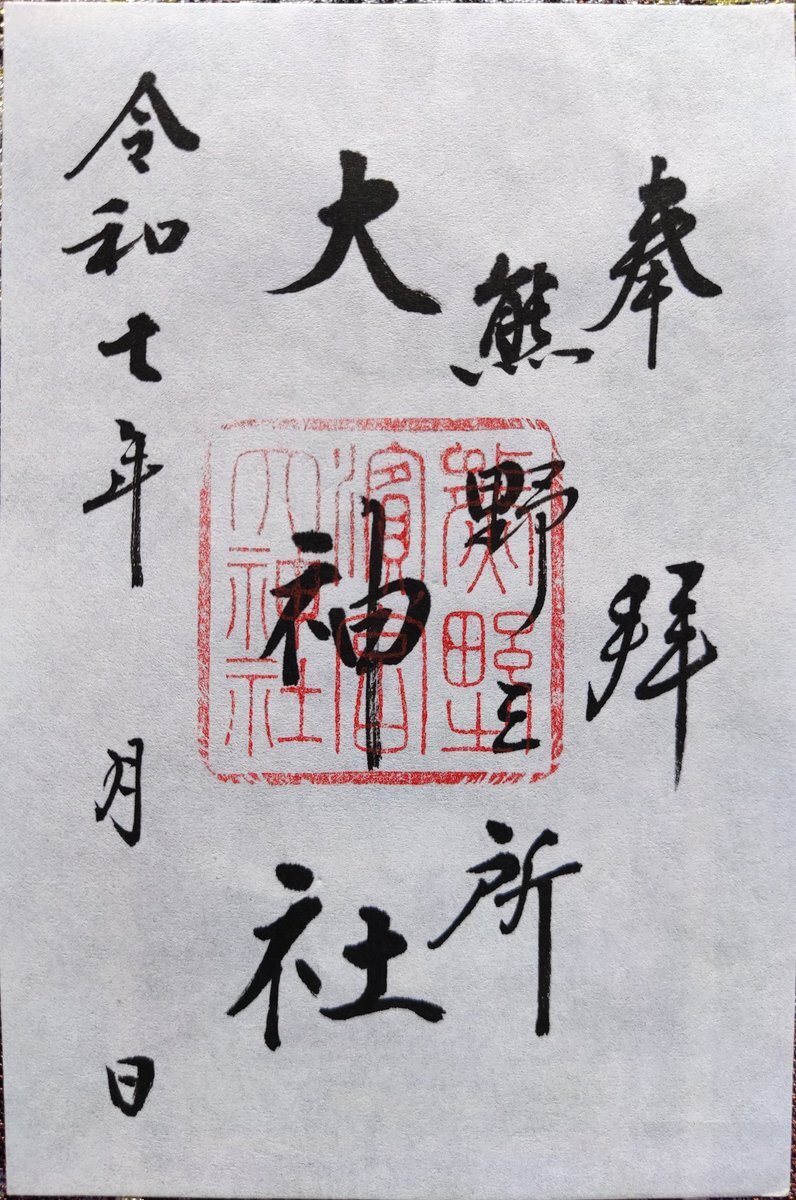 奉拜
熊野三所
大神社
令和七年 月 日
熊野
濱宮
大神社